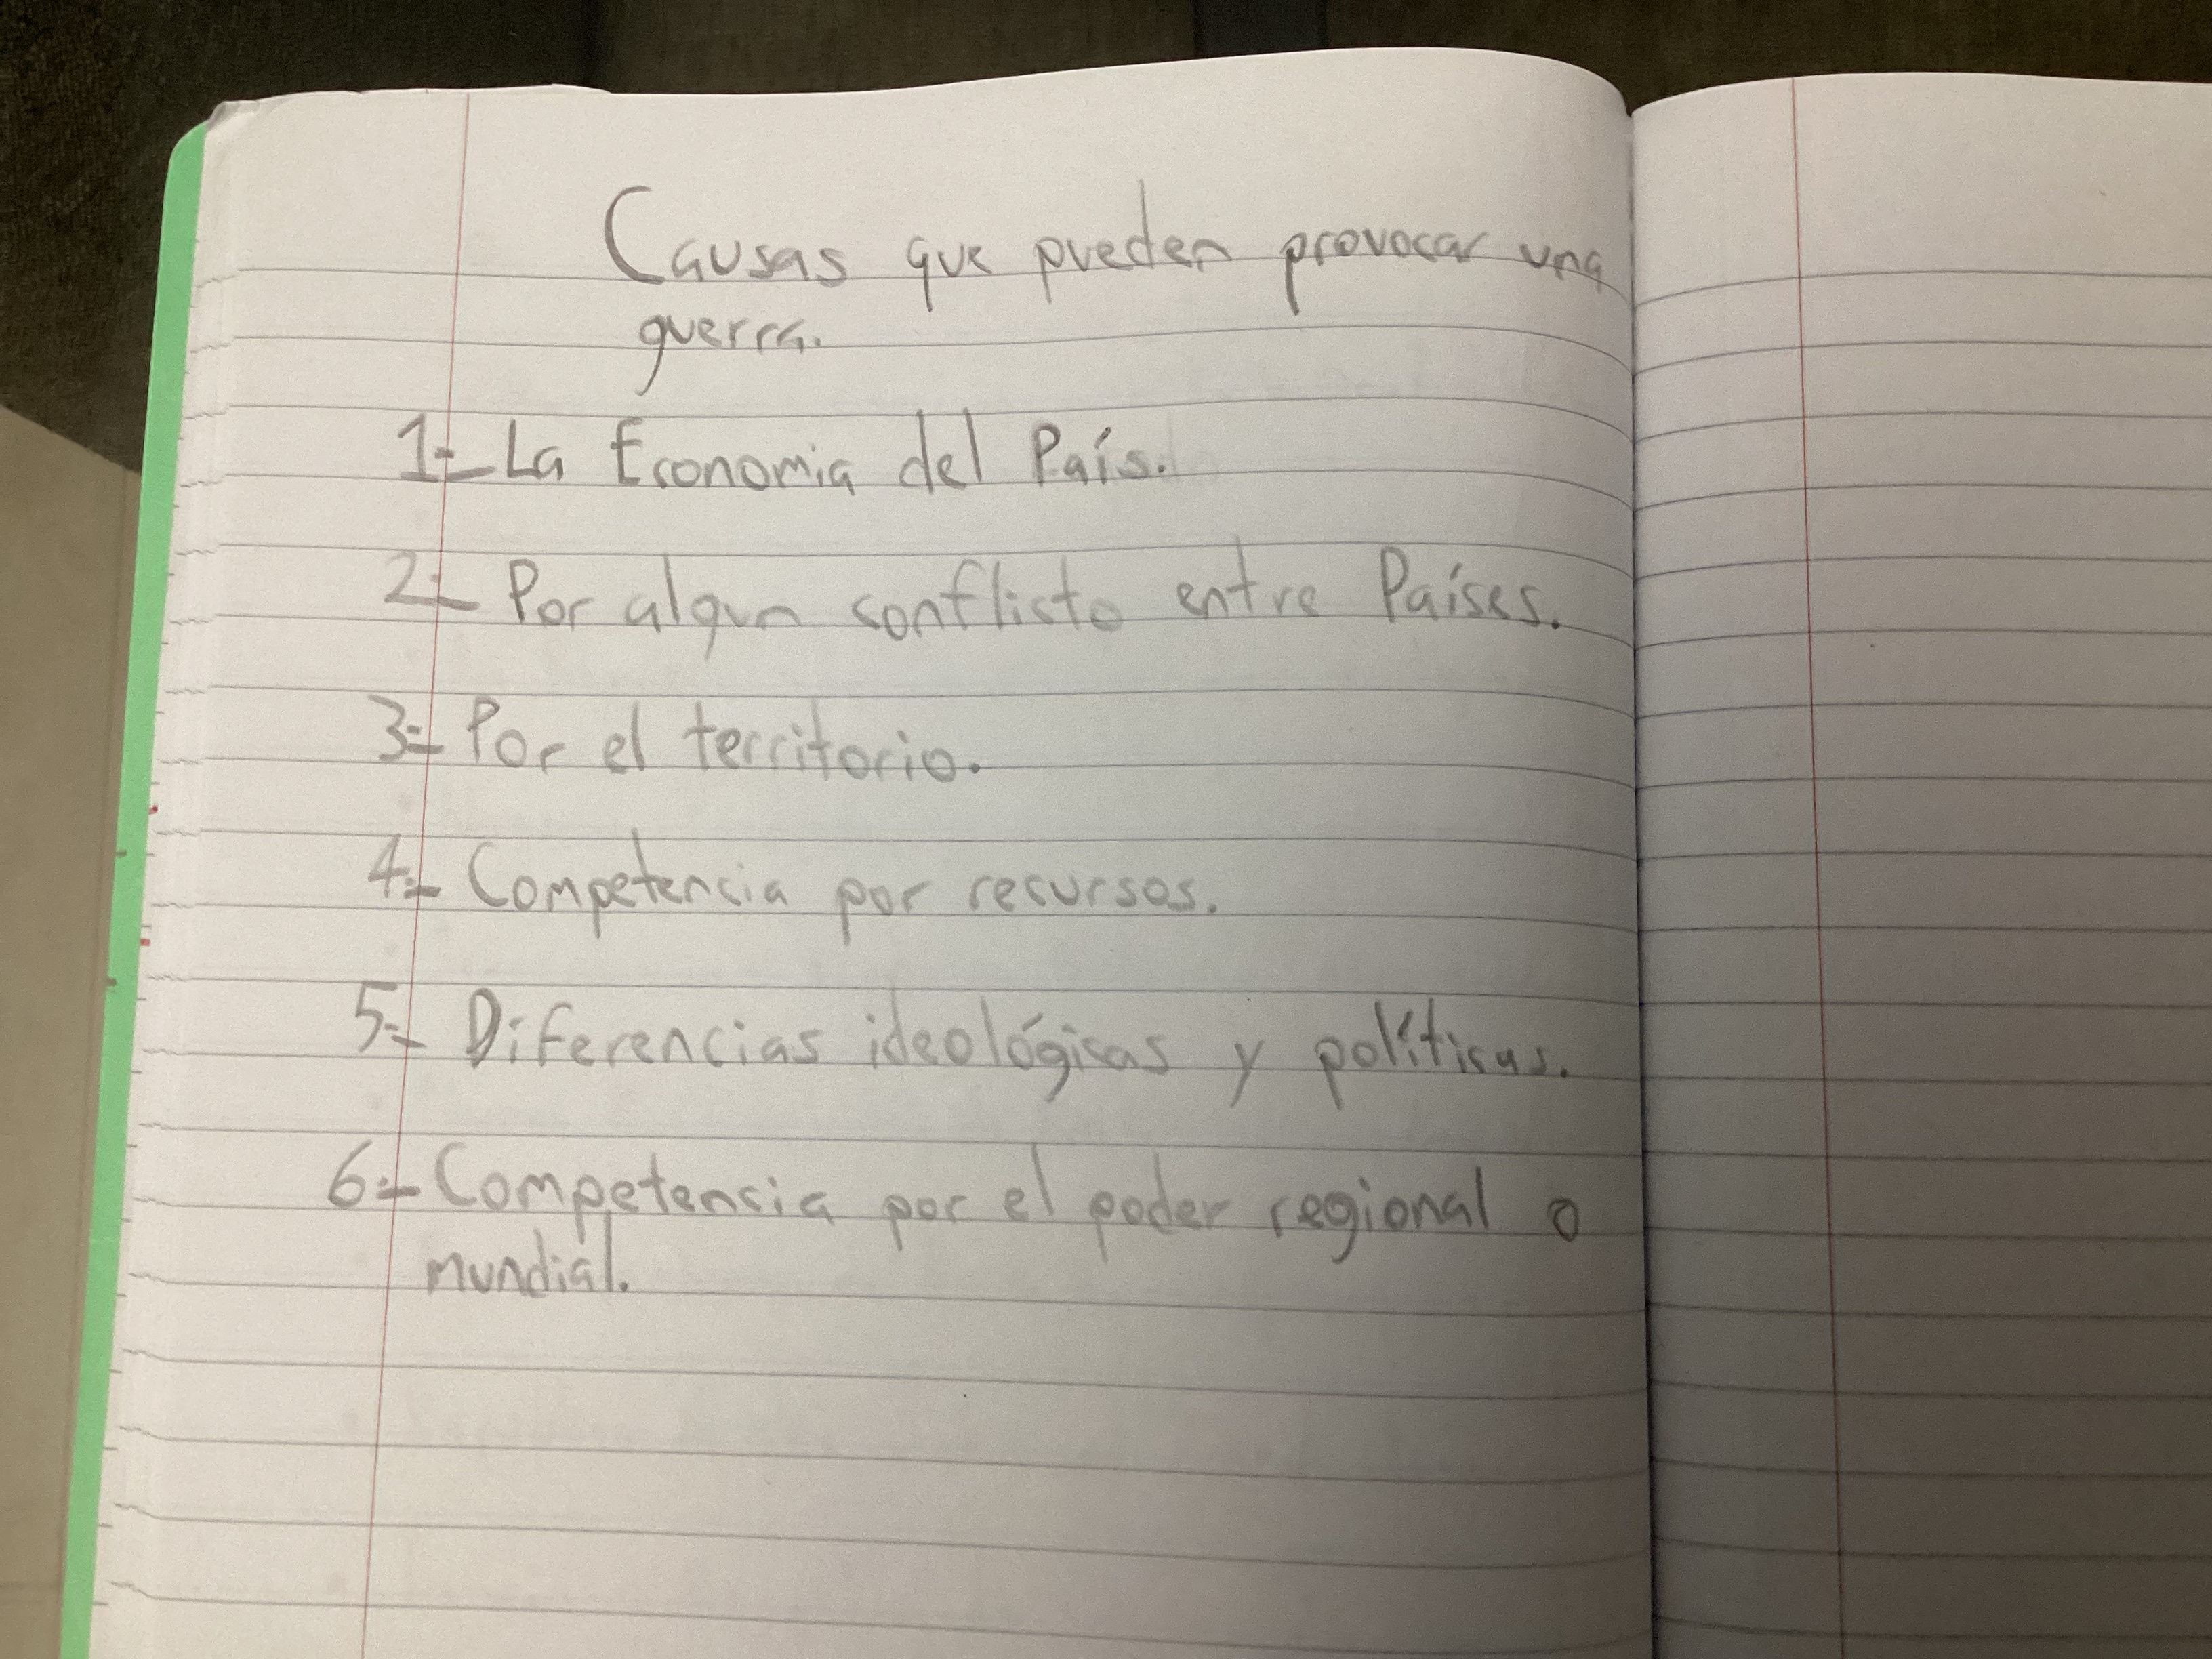 Causas que pueden provocar una
guerra.
1.- La Economia del País.
2.- Por algun conflicto entre Países.
3.- Por el territorio.
4.- Competencia por recursos.
5.- Diferencias ideológicas y políticas.
6.- Competencia por el poder regional o
mundial.